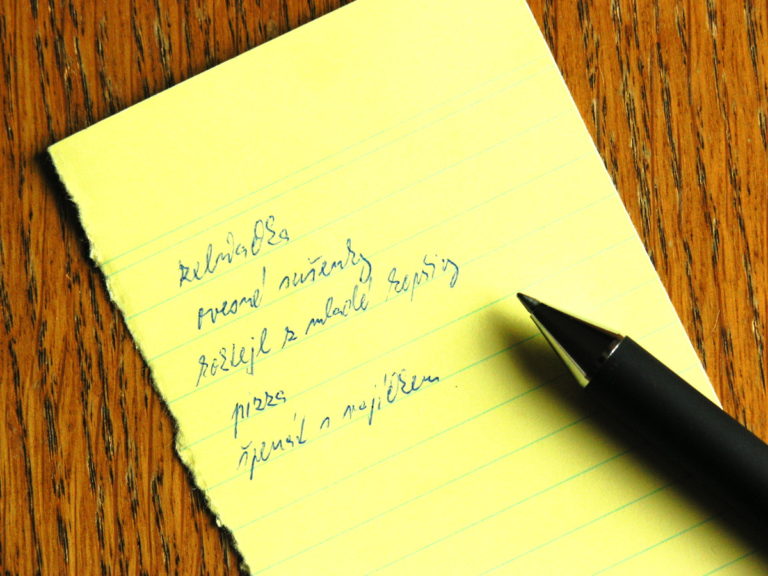 zelňačka
ovesné sušenky
koktejl z mladé kopřivy
pizza
špenát s vajíčkem